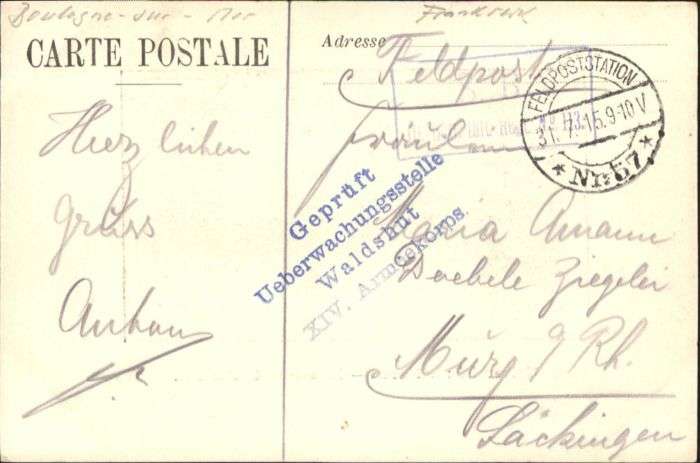 Boulogne-sur-Mer
Frankreich
CARTE POSTALE
Adresse
Herzlichen
Gruss
Anton
Feldpost
Fräulein
Maria Amann
Doebele Ziegelei
Murg a/Rh.
Säckingen
Geprüft
Ueberwachungsstelle
Waldshut
XIV. Armeekorps.
FELDPOSTSTATION
31.7.15.9-10V
* Nr. 57 *
Nº 113